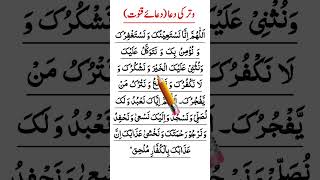 وتر کی دعا (دعائے قنوت)
اَللّٰهُمَّ اِنَّا نَسْتَعِيْنُكَ وَ نَسْتَغْفِرُكَ
وَ نُؤْمِنُ بِكَ وَ نَتَوَكَّلُ عَلَيْكَ
وَنُثْنِیْ عَلَيْكَ الْخَيْرَ وَ نَشْكُرُكَ وَ
لَا نَكْفُرُكَ وَ وَ نَتْرُكُ مَنْ
يَّفْجُرُكَ۔ اَللّٰهُمَّ اِيَّاكَ نَعْبُدُ وَ لَكَ
نُصَلِّيْ وَ نَسْجُدُ وَاِلَيْكَ نَسْعٰى وَ نَحْفِدُ
وَ نَرْجُوْ رَحْمَتَكَ وَ نَخْشٰى عَذَابَكَ اِنَّ
عَذَابَكَ بِالْكُفَّارِ مُلْحِقٌ